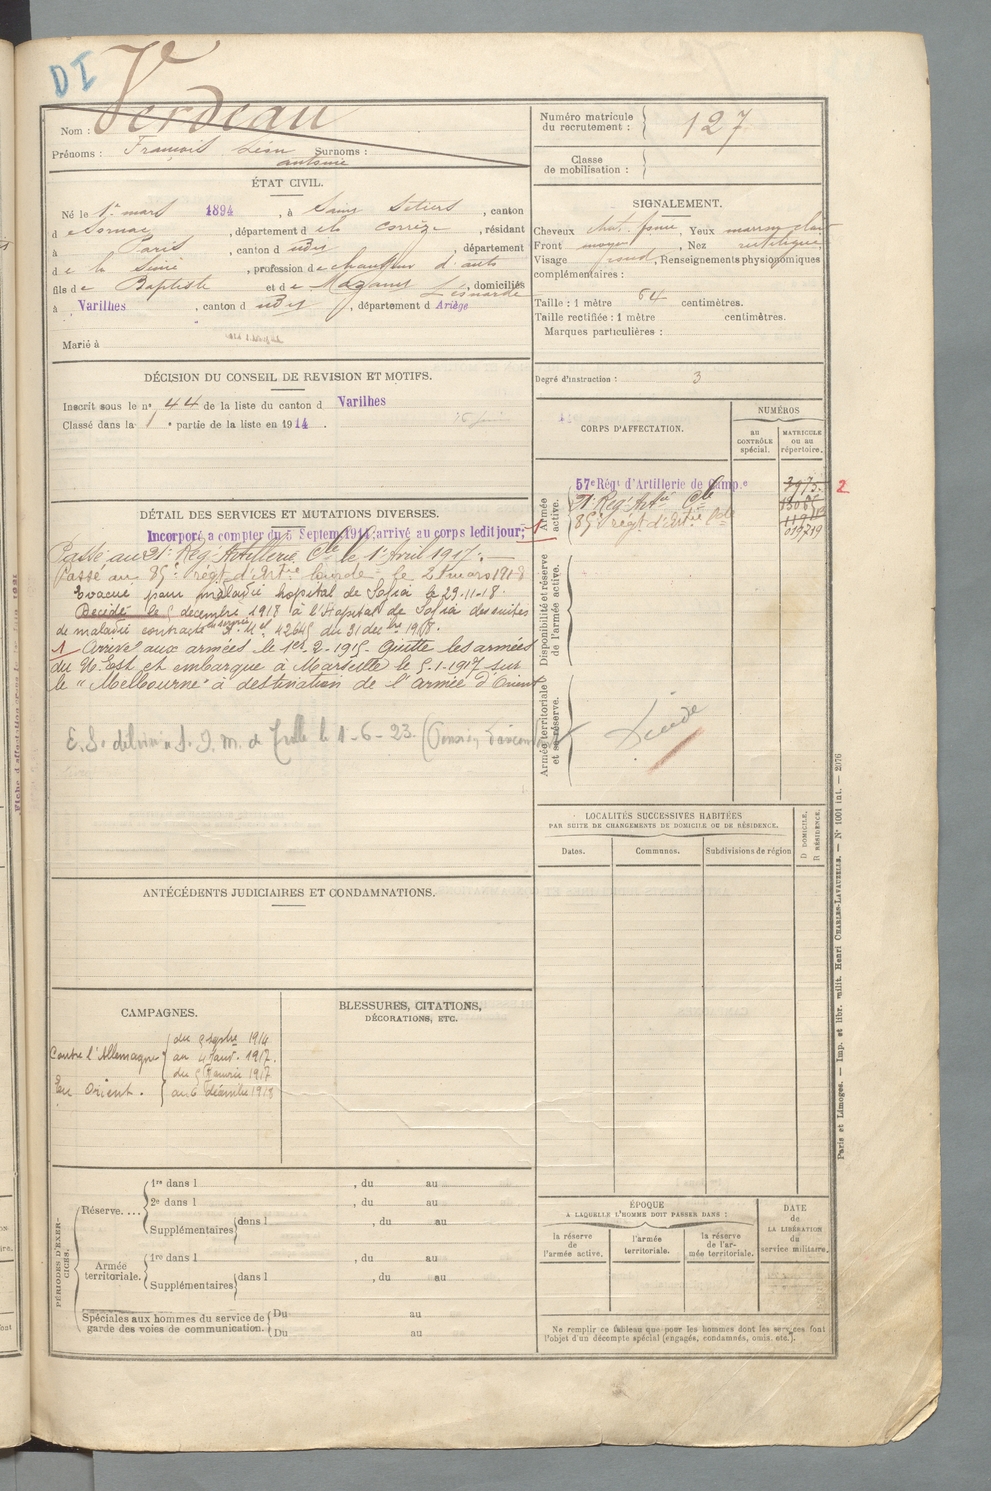 DI
Verdeau
Nom :
Prénoms : François Léon Surnoms :
antonin
ÉTAT CIVIL.
Né le 1er mars 1894, à Saint Setiers, canton
de Sornac, département de la Corrèze, résidant
à Paris, canton d udit, département
de la Seine, profession de chauffeur d'auto
fils de Baptiste et de Mazaud Léonarde, domiciliés
à Varilhes, canton d udit, département d Ariège
Marié à
DÉCISION DU CONSEIL DE REVISION ET MOTIFS.
Inscrit sous le n° 44 de la liste du canton d Varilhes
Classé dans la 1e partie de la liste en 1914.
DÉTAIL DES SERVICES ET MUTATIONS DIVERSES.
Incorporé à compter du 5 Septem. 1914, arrivé au corps ledit jour; 1
Passé au 21e Rég. Artillerie Cle le 1er Avril 1917.
Passé au 85e régt d'Artie lourde le 21 mars 1918
Evacué pour maladie hopital de Sofia le 29-11-18.
Décédé le 5 décembre 1918 à l'Hopital de Sofia des suites
de maladie contractée en service A. Mel 42645 du 31 decbre 1918.
1 Arrivé aux armées le 1er-2-1915. Quitte les armées
du N. Est et embarque à Marseille le 5-1-1917 sur
le "Melbourne" à destination de l'armée d'Orient
le 1-6-23.
ANTÉCÉDENTS JUDICIAIRES ET CONDAMNATIONS.
CAMPAGNES.
Contre l'Allemagne du 5 septbre 1914
au 4 Janv. 1917.
En Orient. du 5 Janvier 1917
au 6 décembre 1918
BLESSURES, CITATIONS,
DÉCORATIONS, ETC.
PÉRIODES D'EXERCICES.
Réserve....
1re dans l , du au
2e dans l , du au
Supplémentaires dans l , du au
Armée territoriale.
1re dans l , du au
Supplémentaires dans l , du au
Spéciales aux hommes du service de
garde des voies de communication.
Du au
Du au
Numéro matricule
du recrutement : 127
Classe
de mobilisation :
SIGNALEMENT.
Cheveux chat. foncé, Yeux marron clair
Front moyen, Nez rectiligne
Visage rond, Renseignements physionomiques
complémentaires :
Taille : 1 mètre 64 centimètres.
Taille rectifiée : 1 mètre centimètres.
Marques particulières :
Degré d'instruction : 3
CORPS D'AFFECTATION.
NUMÉROS
AU
CONTRÔLE
spécial.
MATRICULE
OU AU
répertoire.
Armée
active.
57e Régt d'Artillerie de Camp.e 3975 2
21e Reg. Artie Cle
85e régt d'Artie Lde 019719
Disponibilité et réserve
de l'armée active.
Armée territoriale
et sa réserve.
Décédé
LOCALITÉS SUCCESSIVES HABITÉES
PAR SUITE DE CHANGEMENTS DE DOMICILE OU DE RÉSIDENCE.
Dates.
Communes.
Subdivisions de région
D DOMICILE.
R RÉSIDENCE.
ÉPOQUE
A LAQUELLE L'HOMME DOIT PASSER DANS :
la réserve
de
l'armée active.
l'armée
territoriale.
la réserve
de l'ar-
mée territoriale.
DATE
de
LA LIBÉRATION
du
service militaire.
Ne remplir ce tableau que pour les hommes dont les services font
l'objet d'un décompte spécial (engagés, condamnés, omis, etc.).
Paris et Limoges. — Imp. et libr. milit. Henri CHARLES-LAVAUZELLE. — N° 1001 int. — 2076